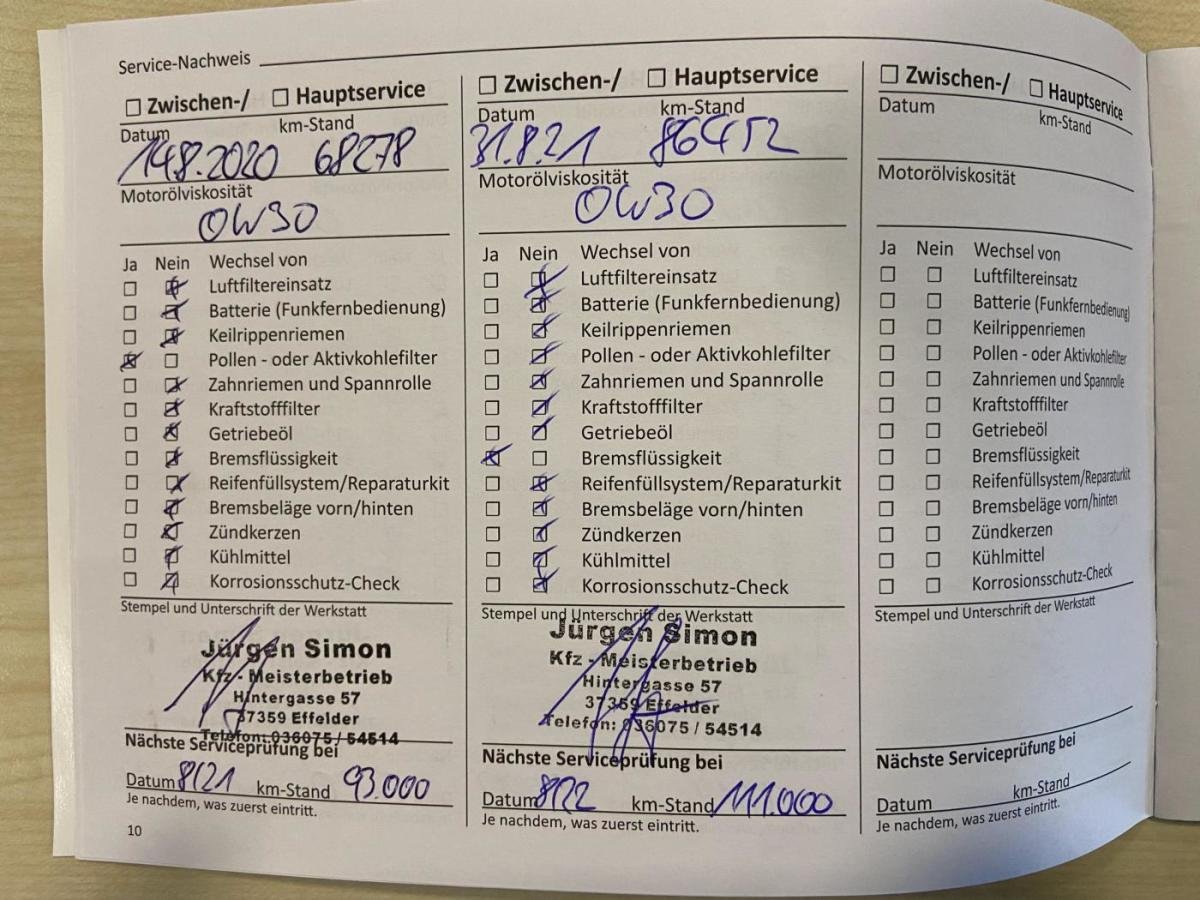 Service-Nachweis
☐ Zwischen-/ ☐ Hauptservice
Datum km-Stand
14.8.2020 68278
Motorölviskosität
0W30
Ja Nein Wechsel von
☐ ☒ Luftfiltereinsatz
☐ ☒ Batterie (Funkfernbedienung)
☐ ☒ Keilrippenriemen
☒ ☐ Pollen - oder Aktivkohlefilter
☐ ☒ Zahnriemen und Spannrolle
☐ ☒ Kraftstofffilter
☐ ☒ Getriebeöl
☐ ☒ Bremsflüssigkeit
☐ ☒ Reifenfüllsystem/Reparaturkit
☐ ☒ Bremsbeläge vorn/hinten
☐ ☒ Zündkerzen
☐ ☒ Kühlmittel
☐ ☒ Korrosionsschutz-Check
Stempel und Unterschrift der Werkstatt
Jürgen Simon
Kfz - Meisterbetrieb
Hintergasse 57
37359 Effelder
Telefon: 036075 / 54514
Nächste Serviceprüfung bei
Datum 8/21 km-Stand 93.000
Je nachdem, was zuerst eintritt.
10
☐ Zwischen-/ ☐ Hauptservice
Datum km-Stand
31.8.21 86452
Motorölviskosität
0W30
Ja Nein Wechsel von
☐ ☒ Luftfiltereinsatz
☐ ☒ Batterie (Funkfernbedienung)
☐ ☒ Keilrippenriemen
☐ ☒ Pollen - oder Aktivkohlefilter
☐ ☒ Zahnriemen und Spannrolle
☐ ☒ Kraftstofffilter
☐ ☒ Getriebeöl
☒ ☐ Bremsflüssigkeit
☐ ☒ Reifenfüllsystem/Reparaturkit
☐ ☒ Bremsbeläge vorn/hinten
☐ ☒ Zündkerzen
☐ ☒ Kühlmittel
☐ ☒ Korrosionsschutz-Check
Stempel und Unterschrift der Werkstatt
Jürgen Simon
Kfz - Meisterbetrieb
Hintergasse 57
37359 Effelder
Telefon: 036075 / 54514
Nächste Serviceprüfung bei
Datum 8/22 km-Stand 111.000
Je nachdem, was zuerst eintritt.
☐ Zwischen-/ ☐ Hauptservice
Datum km-Stand
Motorölviskosität
Ja Nein Wechsel von
☐ ☐ Luftfiltereinsatz
☐ ☐ Batterie (Funkfernbedienung)
☐ ☐ Keilrippenriemen
☐ ☐ Pollen - oder Aktivkohlefilter
☐ ☐ Zahnriemen und Spannrolle
☐ ☐ Kraftstofffilter
☐ ☐ Getriebeöl
☐ ☐ Bremsflüssigkeit
☐ ☐ Reifenfüllsystem/Reparaturkit
☐ ☐ Bremsbeläge vorn/hinten
☐ ☐ Zündkerzen
☐ ☐ Kühlmittel
☐ ☐ Korrosionsschutz-Check
Stempel und Unterschrift der Werkstatt
Nächste Serviceprüfung bei
Datum km-Stand
Je nachdem, was zuerst eintritt.